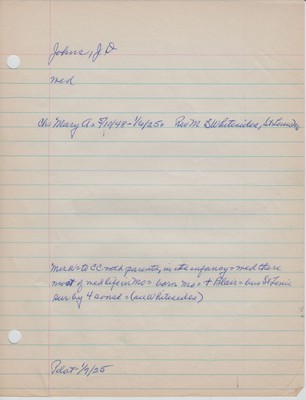 Johns, J D
med
Ch: Mary A = 5/10/48 - 1/6/25 = Rev M B Whitesides, St Louis, Mo
Mar A = to CC with parents, in its infancy = med there
most of med life in Mo = born Mo = + Blair = bur St Louis
sur by 4 sons = (all Whitesides)
Pdat 1/9/25